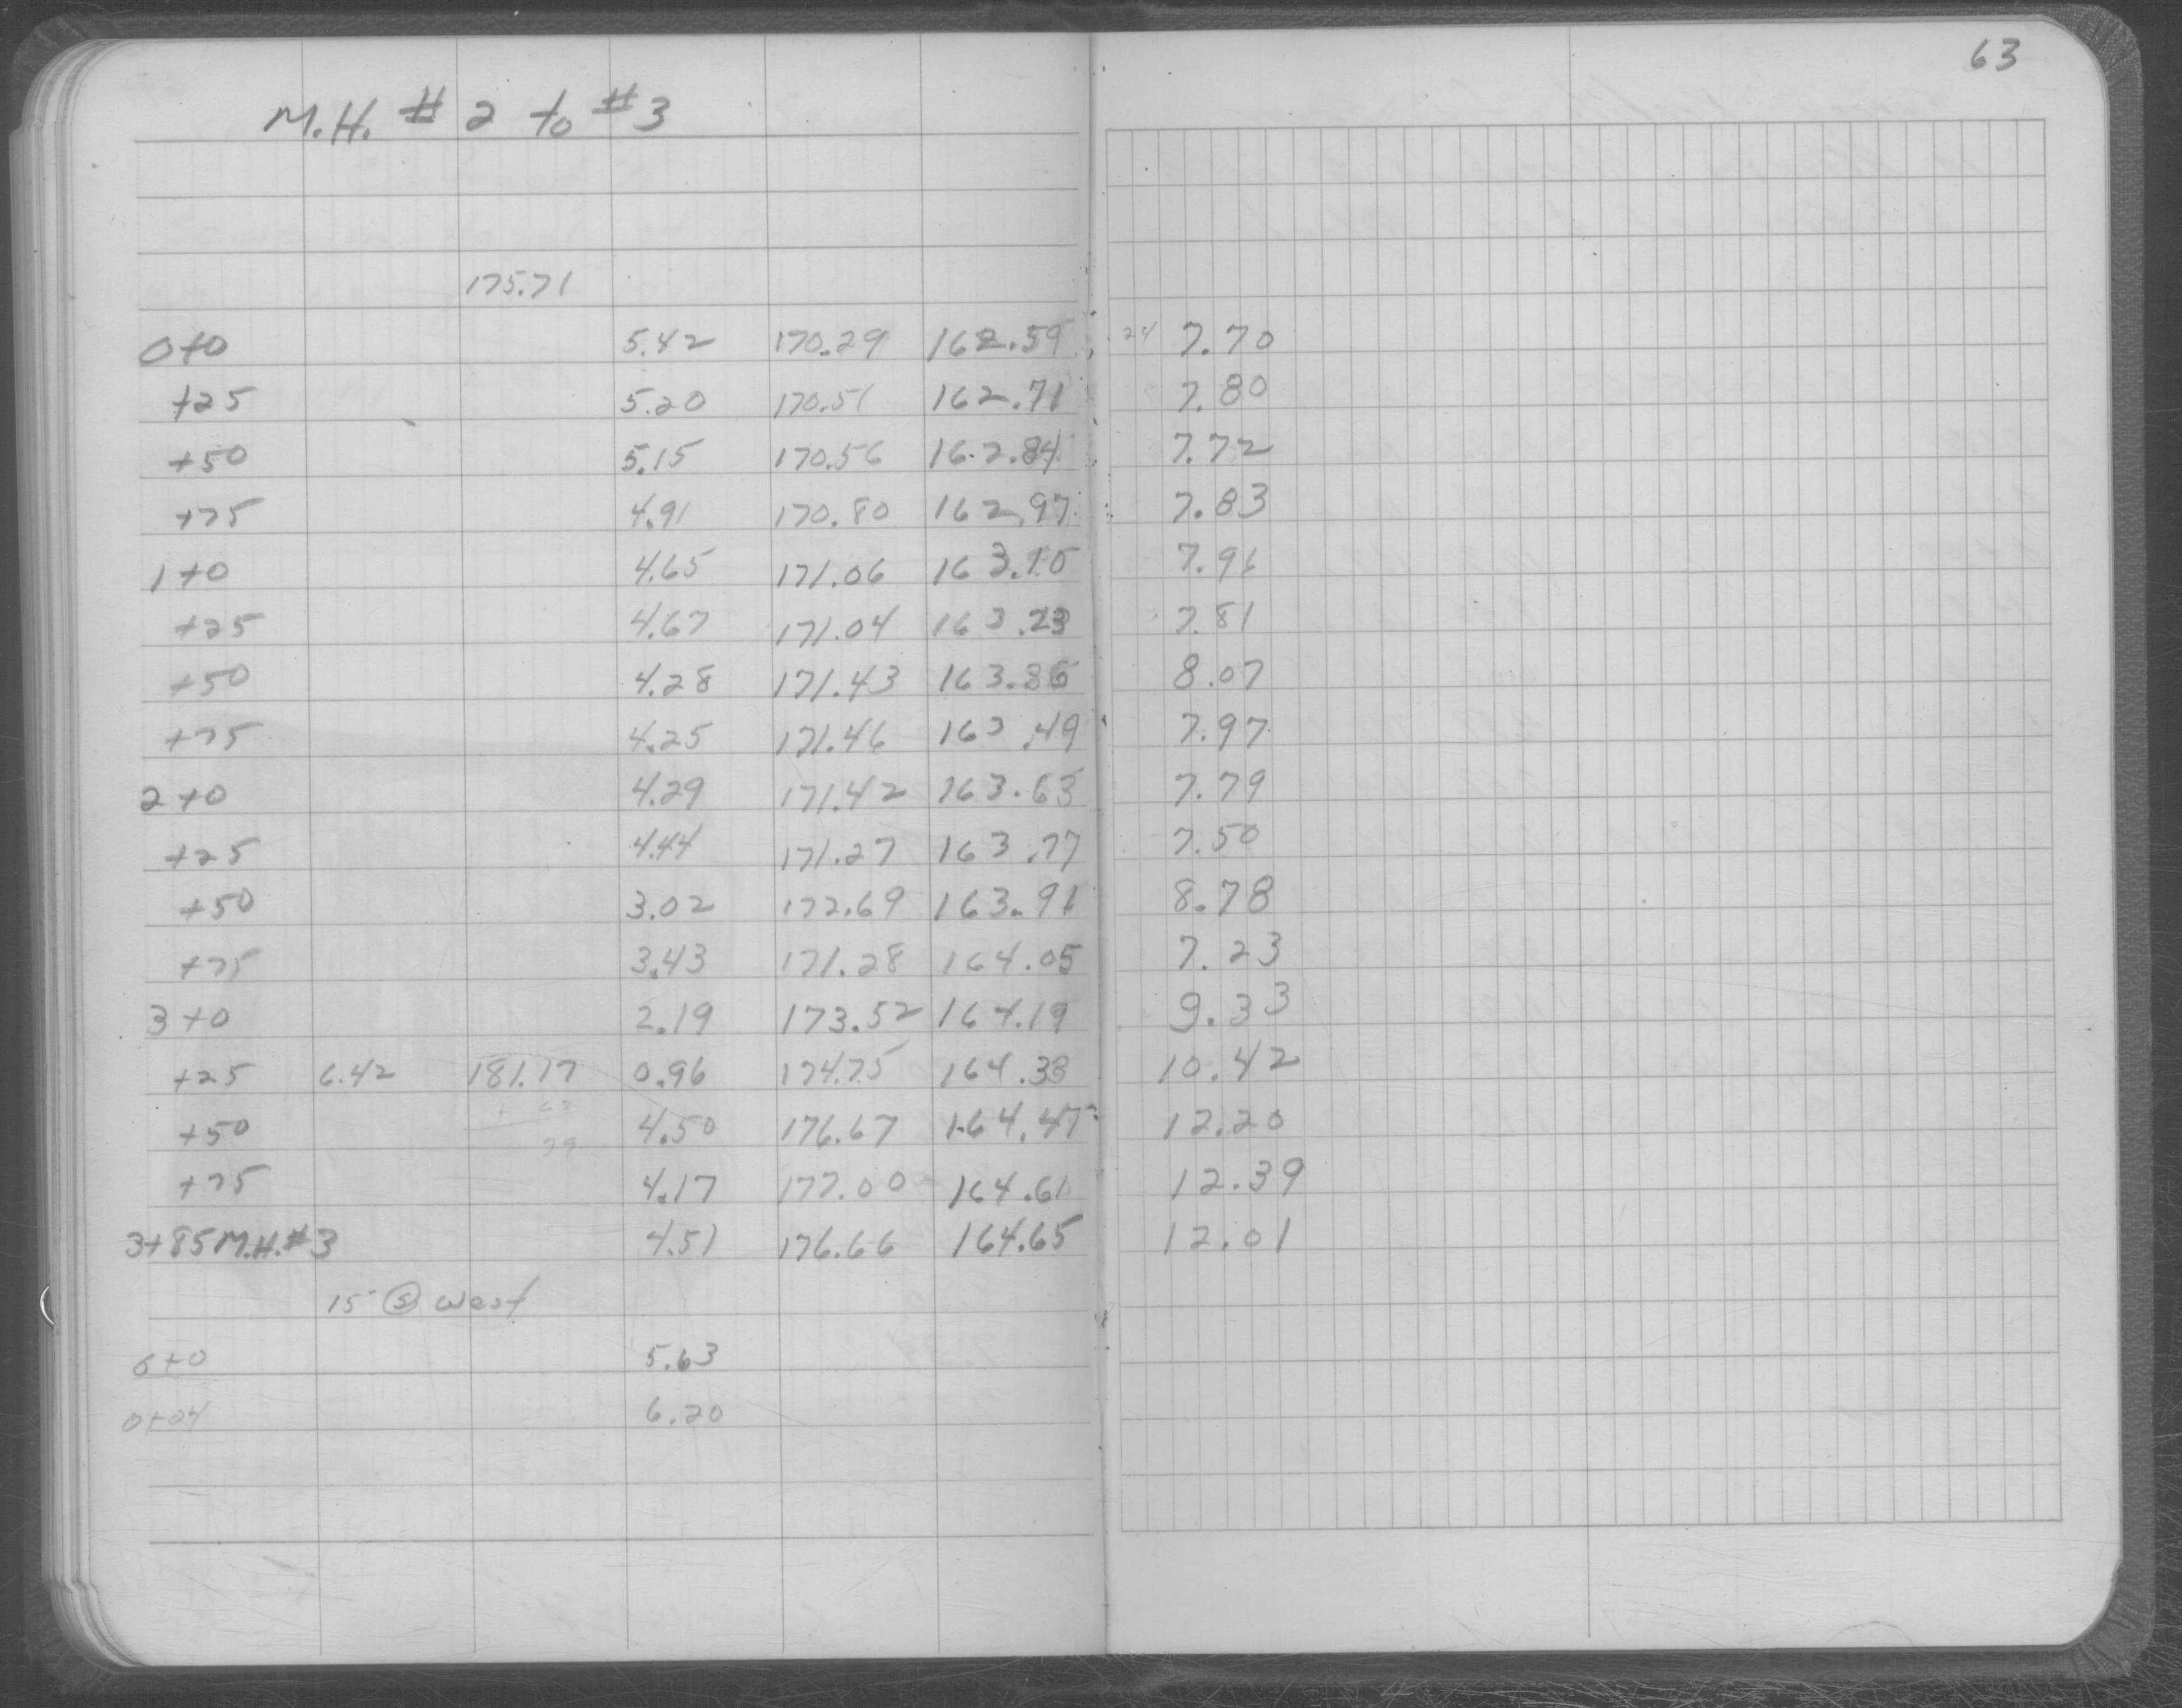 63
M.H. # 2 to #3
175.71
0+0 5.42 170.29 162.59 24 7.70
+25 5.20 170.51 162.71 7.80
+50 5.15 170.56 162.84 7.72
+75 4.91 170.80 162.97 7.83
1+0 4.65 171.06 163.10 7.96
+25 4.67 171.04 163.23 7.81
+50 4.28 171.43 163.36 8.07
+75 4.25 171.46 163.49 7.97
2+0 4.29 171.42 163.63 7.79
+25 4.44 171.27 163.77 7.50
+50 3.02 172.69 163.91 8.78
+75 3.43 171.28 164.05 7.23
3+0 2.19 173.52 164.19 9.33
+25 6.42 181.17 0.96 174.75 164.33 10.42
+50 4.50 176.67 164.47 12.20
+75 4.17 177.00 164.61 12.39
3+85 M.H.#3 4.51 176.66 164.65 12.01
15" Ⓢ west
0+0 5.63
0+24 6.20